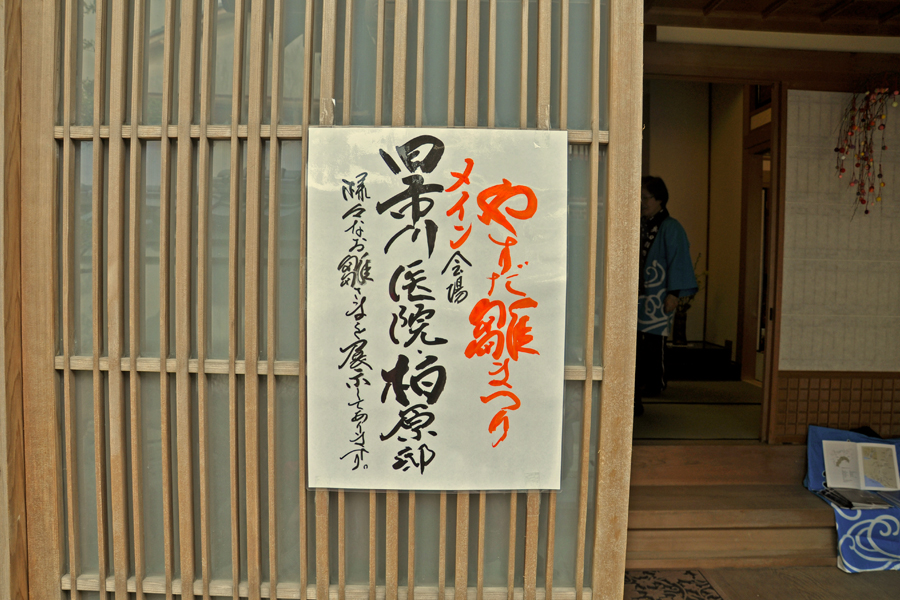 やすだ雛まつり
メイン会場
旧市川医院・柏原邸
様々なお雛さまを展示してあります。